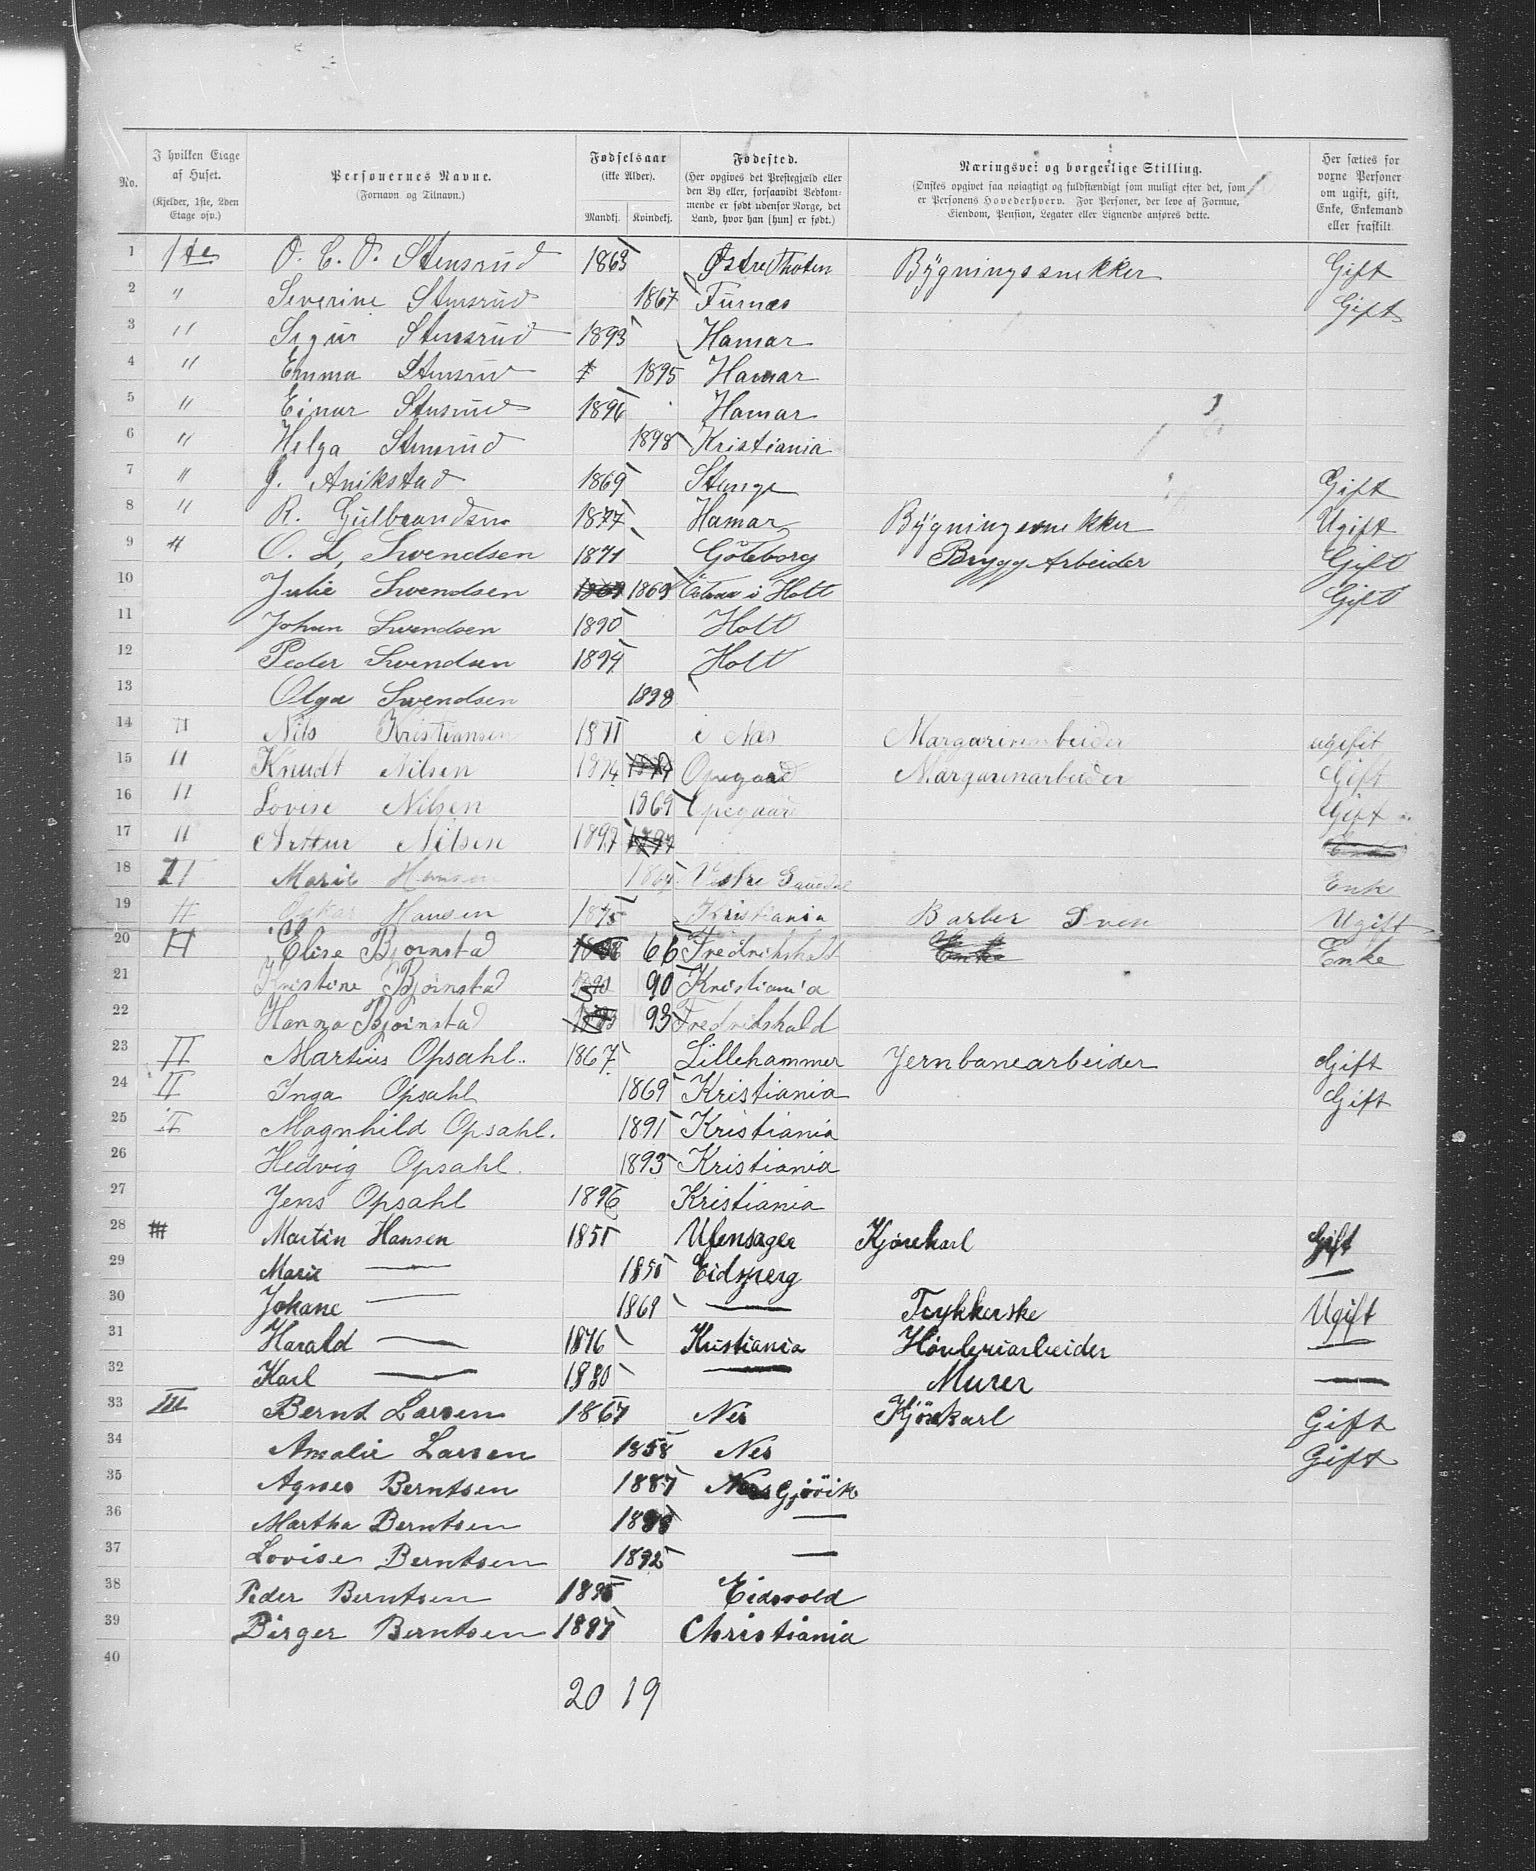 No. | I hvilken Etage af Huset. (Kjelder, 1ste, 2den Etage osv.) | Personernes Navne. (Fornavn og Tilnavn.) | Fødselsaar (ikke Alder). Mandkj. | Kvindekj. | Fødested. (Her opgives det Prestegjæld eller den By eller, forsaavidt Vedkommende er født udenfor Norge, det Land, hvor han [hun] er født.) | Næringsvei og borgerlige Stilling. (Ønskes opgivet saa nøiagtigt og fuldstændigt som muligt efter det, som er Personens Hovederhverv. For Personer, der leve af Formue, Eiendom, Pension, Legater eller Lignende anføres dette. | Her sættes for voxne Personer om ugift, gift, Enke, Enkemand eller fraskilt.
1 1ste O. C. O. Stensrud 1863 Østre Thoten Bygningssnekker Gift
2 " Severine Stensrud 1867 Furnæs Gift
3 " Sigur Stensrud 1893 Hamar
4 " Emma Stensrud 1895 Hamar
5 " Einar Stensrud 1896 Hamar
6 " Helga Stensrud 1898 Kristiania
7 " J. Anikstad 1869 Stange Gift
8 " R. Gulbrandsen 1877 Hamar Bygningssnekker Ugift
9 " O. L. Swendsen 1871 Göteborg Brygg Arbeider Gift
10 Julie Swendsen 1869 i Holt Gift
11 Johan Swendsen 1890 Holt
12 Peder Swendsen 1894 Holt
13 Olga Swendsen 1898
14 " Nils Kristiansen 1871 i Næs Margarinarbeider ugift
15 " Knudt Nilsen 1874 Opegaard Margarinarbeider Gift
16 " Lovise Nilsen 1869 Opegaard Gift
17 " Arttur Nilsen 1897
18 II Marie Hansen Vestre Enke
19 " Oskar Hansen 1875 Kristiania Barber Sven Ugift
20 II Elise Bjørnstad 66 Fredrikshald Enke
21 Kristine Bjørnstad 90 Kristiania
22 Hanna Bjørnstad 93 Fredrikshald
23 II Martius Opsahl. 1867 Lillehammer Jernbanearbeider Gift
24 II Inga Opsahl 1869 Kristiania Gift
25 II Magnhild Opsahl. 1891 Kristiania
26 Hedvig Opsahl. 1893 Kristiania
27 Jens Opsahl 1896 Kristiania
28 III Martin Hansen 1851 Ulensager Kjørekarl Gift
29 Marie — 1850 Eidsberg —
30 Johane — 1869 — Trykkerske Ugift
31 Harald — 1876 Kristiania Høvleriarbeider —
32 Karl — 1880 — Murer —
33 III Bernt Larsen 1867 Nes Kjørekarl Gift
34 Amalie Larsen 1858 Nes Gift
35 Agnes Berntsen 1887 Gjövik
36 Martha Berntsen —
37 Lovise Berntsen 1892 —
38 Peder Berntsen 1895 Eidsvold
39 Birger Berntsen 1897 Christiania
40
20 19